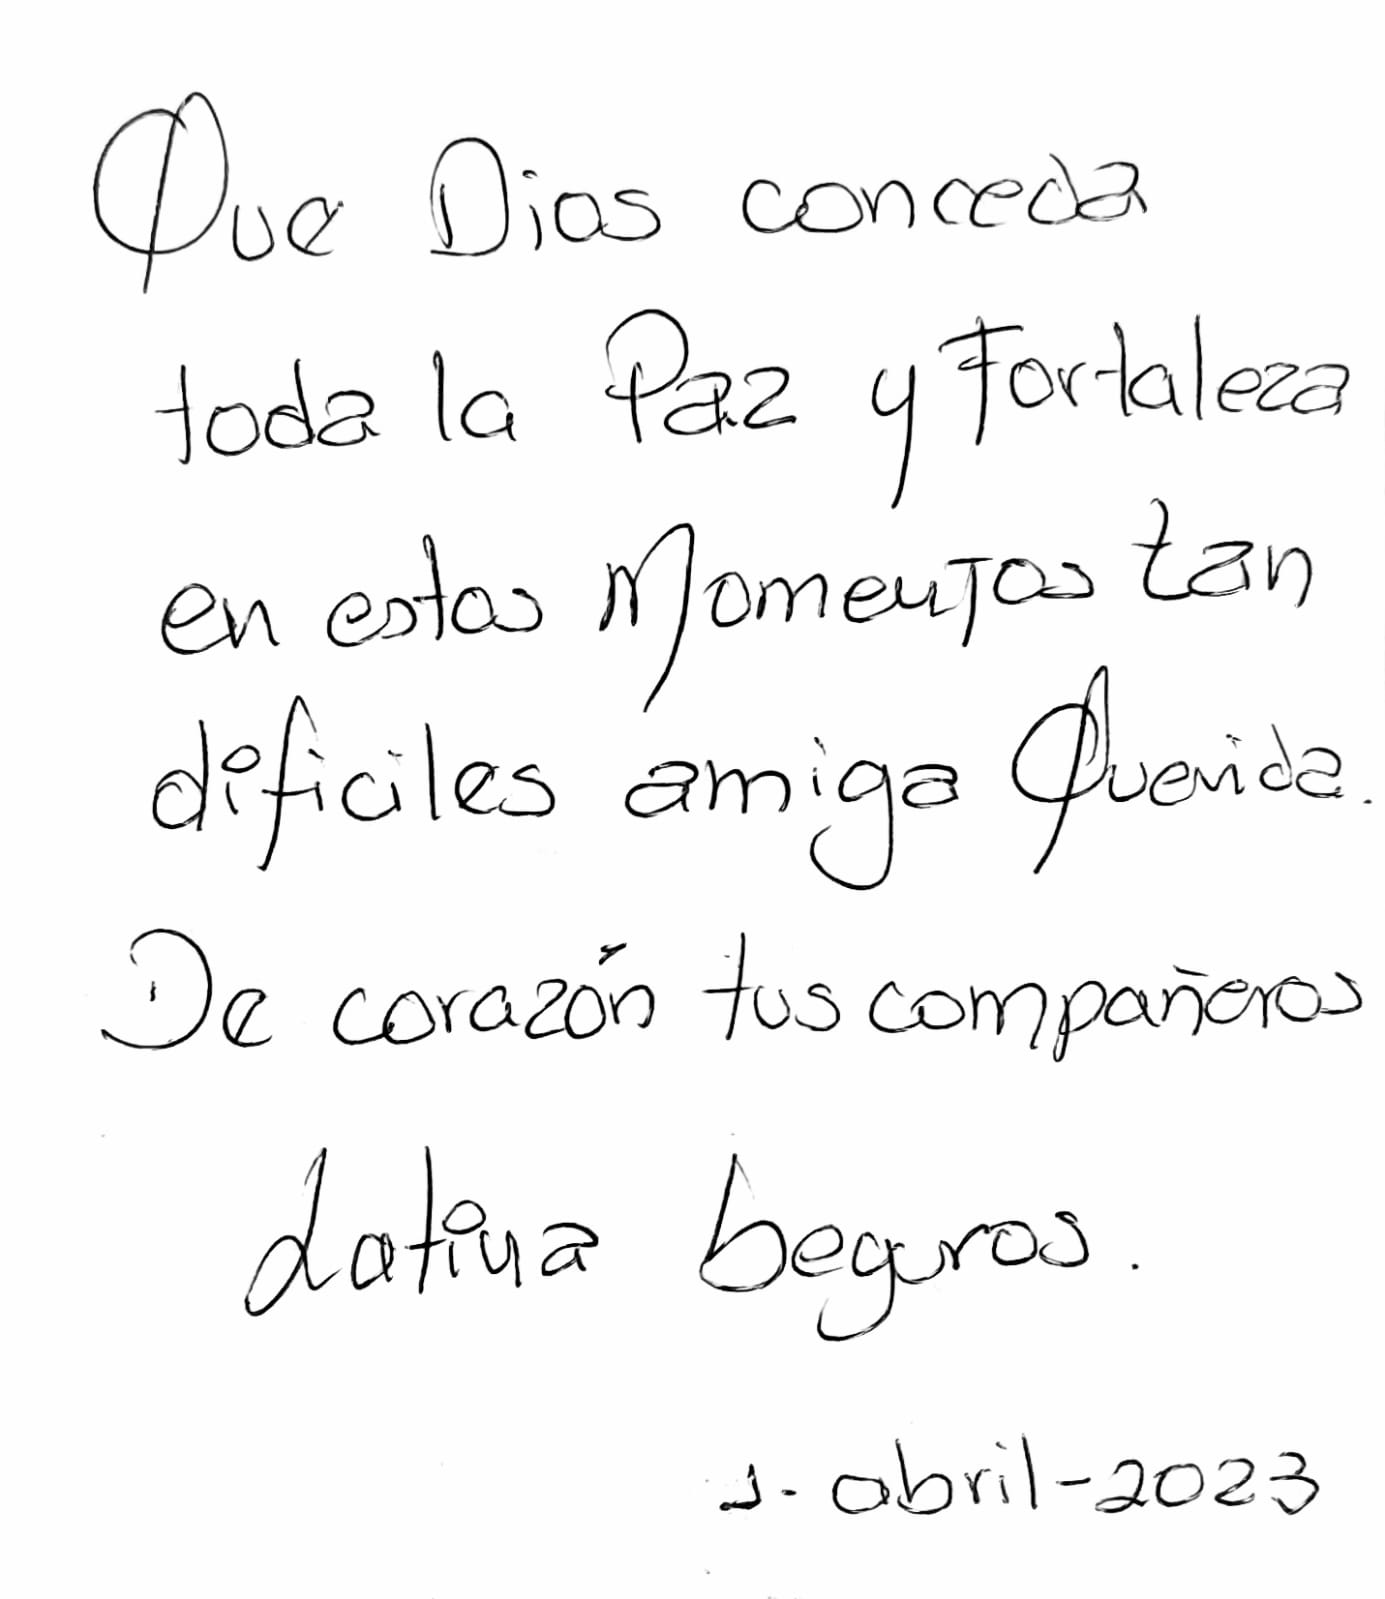 Que Dios conceda
toda la Paz y Fortaleza
en estos Momentos tan
dificiles amiga Querida.
De corazón tus compañeros
Latina Seguros.
1- abril-2023